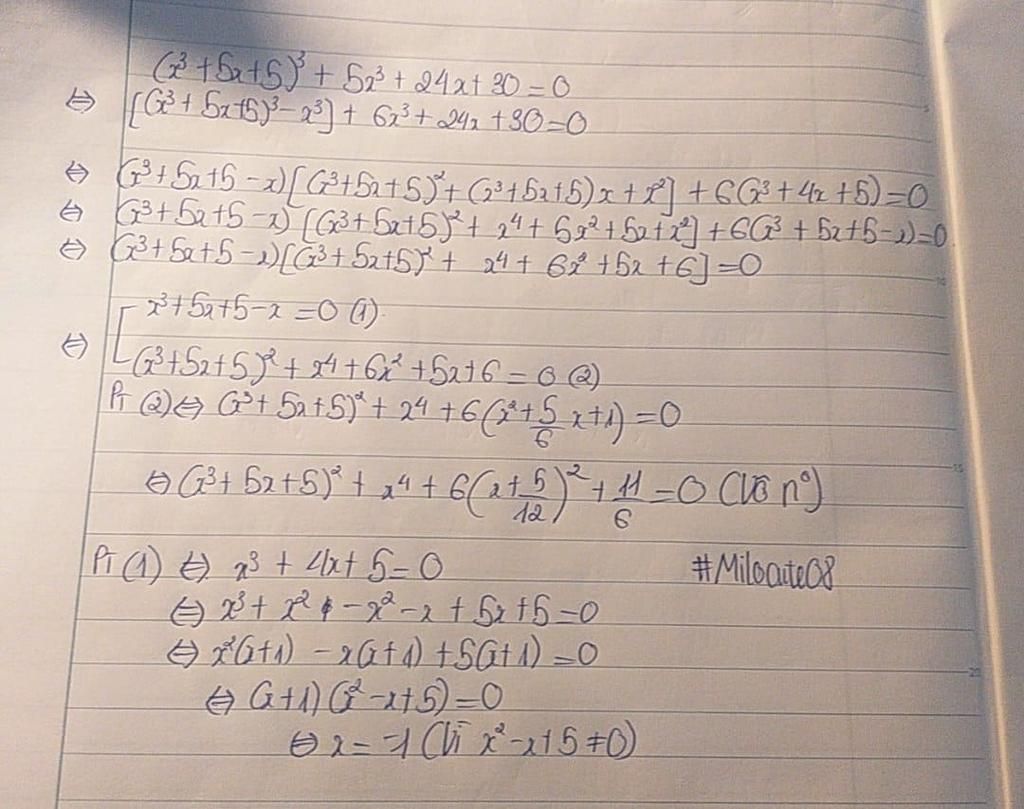 (x³+5x+5)³ + 5x³ + 24x + 30 = 0
⇔ [(x³+5x+5)³ - x³] + 6x³ + 24x + 30 = 0
⇔ (x³+5x+5-x)[(x³+5x+5)² + (x³+5x+5)x + x²] + 6(x³+4x+5) = 0
⇔ (x³+5x+5-x)[(x³+5x+5)² + x⁴ + 5x² + 5x + x²] + 6(x³+5x+5-x) = 0
⇔ (x³+5x+5-x)[(x³+5x+5)² + x⁴ + 6x² + 5x + 6] = 0
⇔ [ x³+5x+5-x = 0 (1)
(x³+5x+5)² + x⁴ + 6x² + 5x + 6 = 0 (2)
PT (2) ⇔ (x³+5x+5)² + x⁴ + 6(x² + 5/6 x + 1) = 0
⇔ (x³+5x+5)² + x⁴ + 6(x + 5/12)² + 11/6 = 0 (Vô n⁰)
PT (1) ⇔ x³ + 4x + 5 = 0
#Milocute08
⇔ x³ + x² - x² - x + 5x + 5 = 0
⇔ x²(x+1) - x(x+1) + 5(x+1) = 0
⇔ (x+1)(x²-x+5) = 0
⇔ x = -1 (Vì x²-x+5 ≠ 0)